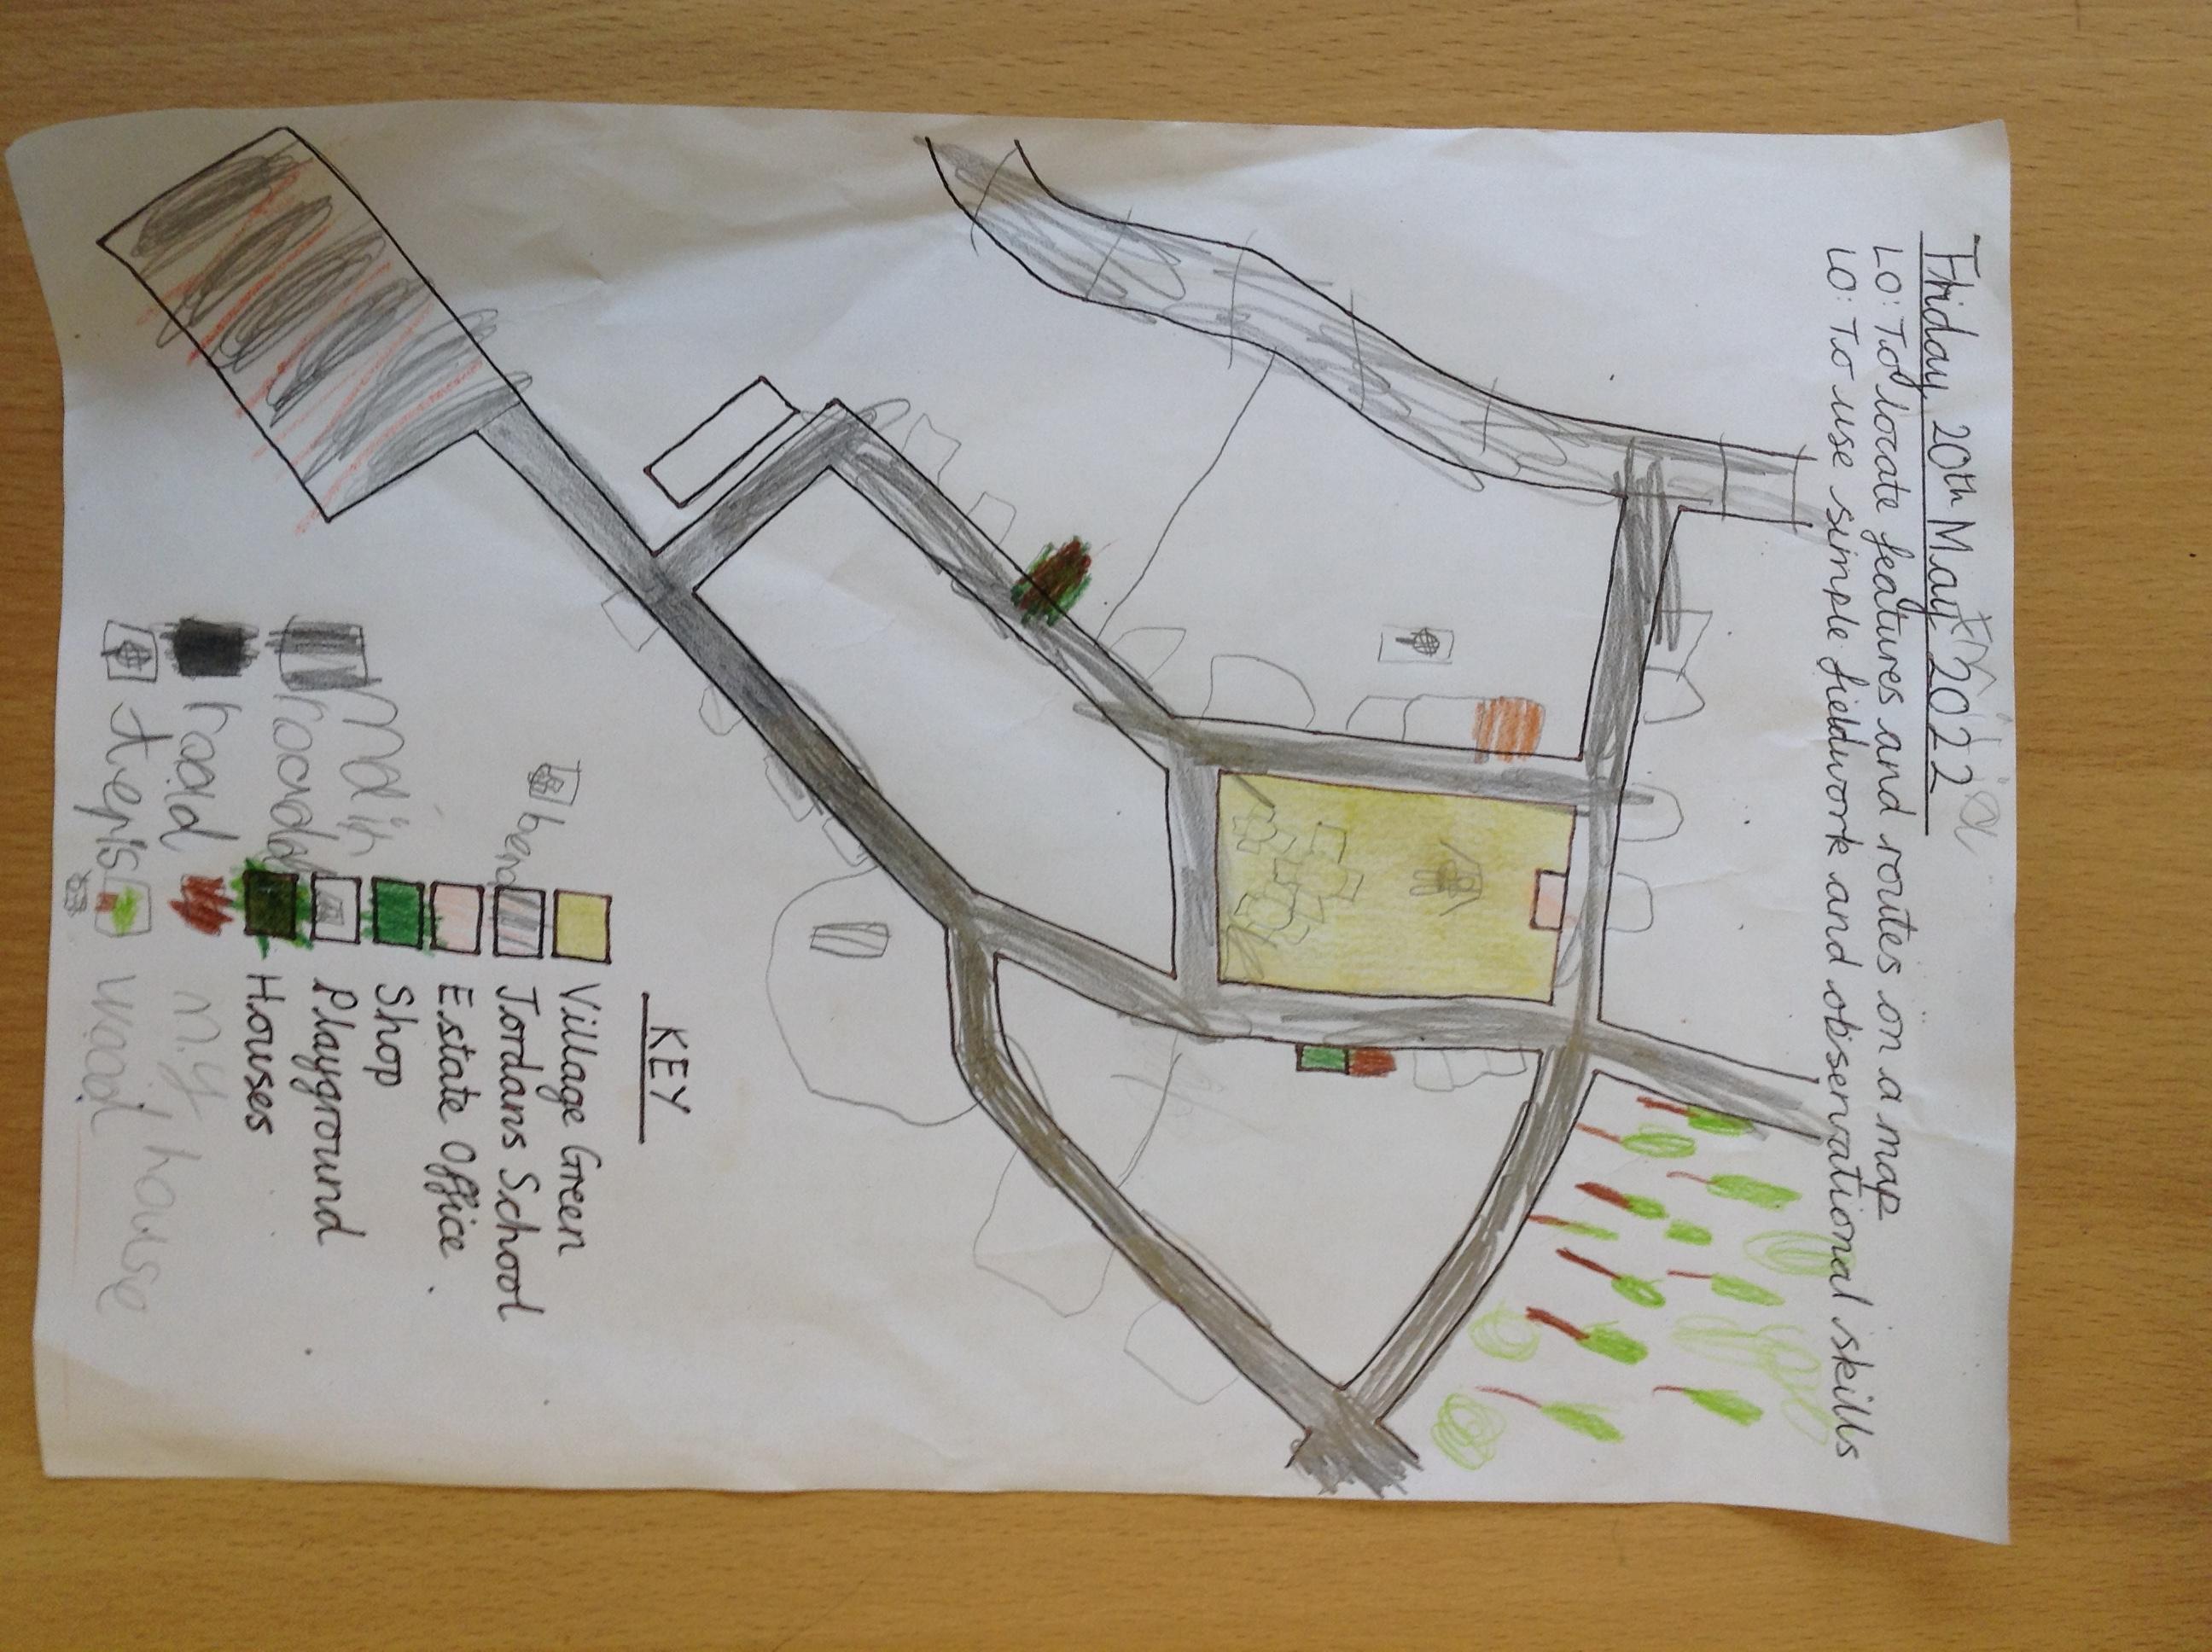 Friday 20th May 2022
LO: To locate features and routes on a map
LO: To use simple fieldwork and observational skills
KEY
Village Green
Jordans School
Estate Office
Shop
Playground
Houses
my house
wood
Main
roadd
roald